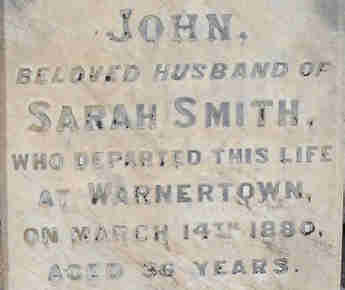 JOHN,
BELOVED HUSBAND OF
SARAH SMITH,
WHO DEPARTED THIS LIFE
AT WARNERTOWN,
ON MARCH 14TH 1880,
AGED 36 YEARS.